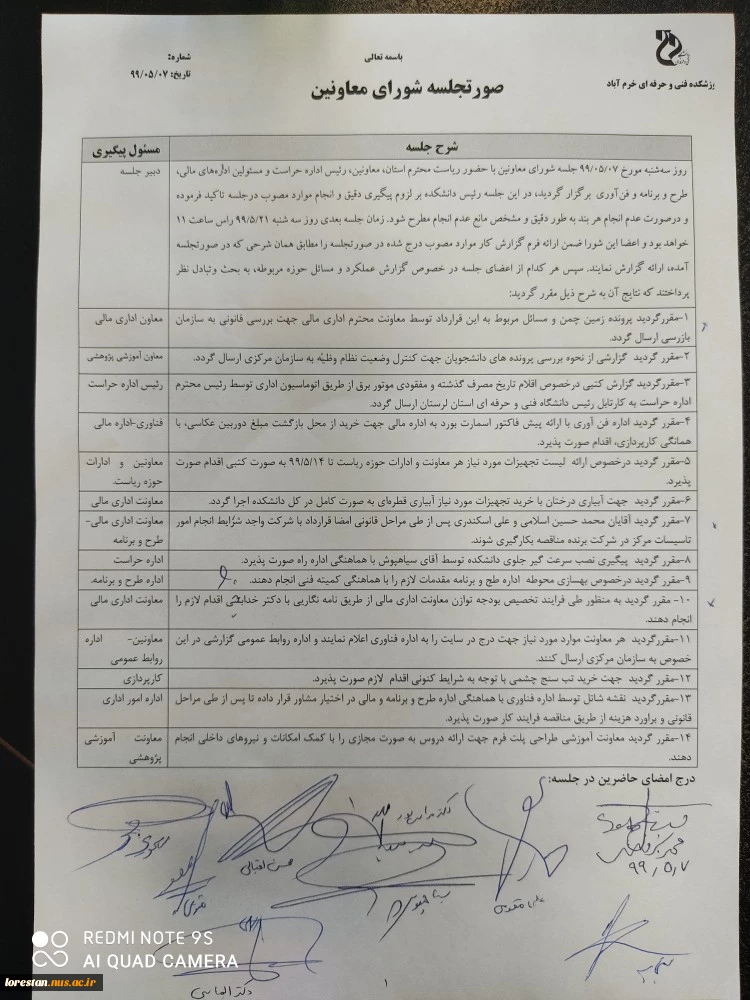 باسمه تعالی
شماره:
تاریخ: ۹۹/۰۵/۰۷
وزشکده فنی و حرفه ای خرم آباد
صورتجلسه شورای معاونین
شرح جلسه
مسئول پیگیری
روز سه‌شنبه مورخ ۹۹/۰۵/۰۷ جلسه شورای معاونین با حضور ریاست محترم استان، معاونین، رئیس اداره حراست و مسئولین اداره‌های مالی،
دبیر جلسه
طرح و برنامه و فن‌آوری برگزار گردید، در این جلسه رئیس دانشکده بر لزوم پیگیری دقیق و انجام موارد مصوب درجلسه تاکید فرموده
و درصورت عدم انجام هر بند به طور دقیق و مشخص مانع عدم انجام مطرح شود. زمان جلسه بعدی روز سه شنبه ۹۹/۵/۲۱ راس ساعت ۱۱
خواهد بود و اعضا این شورا ضمن ارائه فرم گزارش کار موارد مصوب درج شده در صورتجلسه را مطابق همان شرحی که در صورتجلسه
آمده، ارائه گزارش نمایند. سپس هر کدام از اعضای جلسه در خصوص گزارش عملکرد و مسائل حوزه مربوطه، به بحث وتبادل نظر
پرداختند که نتایج آن به شرح ذیل مقرر گردید:
۱-مقررگردید پرونده زمین چمن و مسائل مربوط به این قرارداد توسط معاونت محترم اداری مالی جهت بررسی قانونی به سازمان
معاون اداری مالی
بازرسی ارسال گردد.
۲-مقرر گردید گزارشی از نحوه بررسی پرونده های دانشجویان جهت کنترل وضعیت نظام وظیفه به سازمان مرکزی ارسال گردد.
معاون آموزشی پژوهشی
۳-مقررگردید گزارش کتبی درخصوص اقلام تاریخ مصرف گذشته و مفقودی موتور برق از طریق اتوماسیون اداری توسط رئیس محترم
رئیس اداره حراست
اداره حراست به کارتابل رئیس دانشگاه فنی و حرفه ای استان لرستان ارسال گردد.
۴-مقرر گردید اداره فن آوری با ارائه پیش فاکتور اسمارت بورد به اداره مالی جهت خرید از محل بازگشت مبلغ دوربین عکاسی، با
فناوری-اداره مالی
همانگی کارپردازی، اقدام صورت پذیرد.
۵-مقرر گردید درخصوص ارائه لیست تجهیزات مورد نیاز هر معاونت و ادارات حوزه ریاست تا ۹۹/۵/۱۴ به صورت کتبی اقدام صورت
معاونین و ادارات
پذیرد.
حوزه ریاست.
۶-مقرر گردید جهت آبیاری درختان با خرید تجهیزات مورد نیاز آبیاری قطره‌ای به صورت کامل در کل دانشکده اجرا گردد.
معاونت اداری مالی
۷-مقرر گردید آقایان محمد حسین اسلامی و علی اسکندری پس از طی مراحل قانونی امضا قرارداد با شرکت واجد شرایط انجام امور
معاونت اداری مالی-
تاسیسات مرکز در شرکت برنده مناقصه بکارگیری شوند.
طرح و برنامه
۸-مقرر گردید پیگیری نصب سرعت گیر جلوی دانشکده توسط آقای سیاهپوش با هماهنگی اداره راه صورت پذیرد.
اداره حراست
۹-مقرر گردید درخصوص بهسازی محوطه اداره طج و برنامه مقدمات لازم را با هماهنگی کمیته فنی انجام دهند.
اداره طرح و برنامه.
۱۰- مقرر گردید به منظور طی فرایند تخصیص بودجه توازن معاونت اداری مالی از طریق نامه نگاریی با دکتر خدابخشی اقدام لازم را
معاونت اداری مالی
انجام دهند.
۱۱-مقررگردید هر معاونت موارد مورد نیاز جهت درج در سایت را به اداره فناوری اعلام نمایند و اداره روابط عمومی گزارشی در این
معاونین- اداره
خصوص به سازمان مرکزی ارسال کنند.
روابط عمومی
۱۲-مقرر گردید جهت خرید تب سنج چشمی با توجه به شرایط کنونی اقدام لازم صورت پذیرد.
کارپردازی
۱۳-مقرر گردید نقشه شاتل توسط اداره فناوری با هماهنگی اداره طرح و برنامه و مالی در اختیار مشاور قرار داده تا پس از طی مراحل
اداره امور اداری
قانونی و براورد هزینه از طریق مناقصه فرایند کار صورت پذیرد.
۱۴-مقرر گردید معاونت آموزشی طراحی پلت فرم جهت ارائه دروس به صورت مجازی را با کمک امکانات و نیروهای داخلی انجام
معاونت آموزشی
دهند.
پژوهشی
درج امضای حاضرین در جلسه:
۹۹/۵/۷
حسن اقبالی
سیاهپوش
دکتر الماسی
۱
REDMI NOTE 9S
AI QUAD CAMERA
lorestan.nus.ac.ir